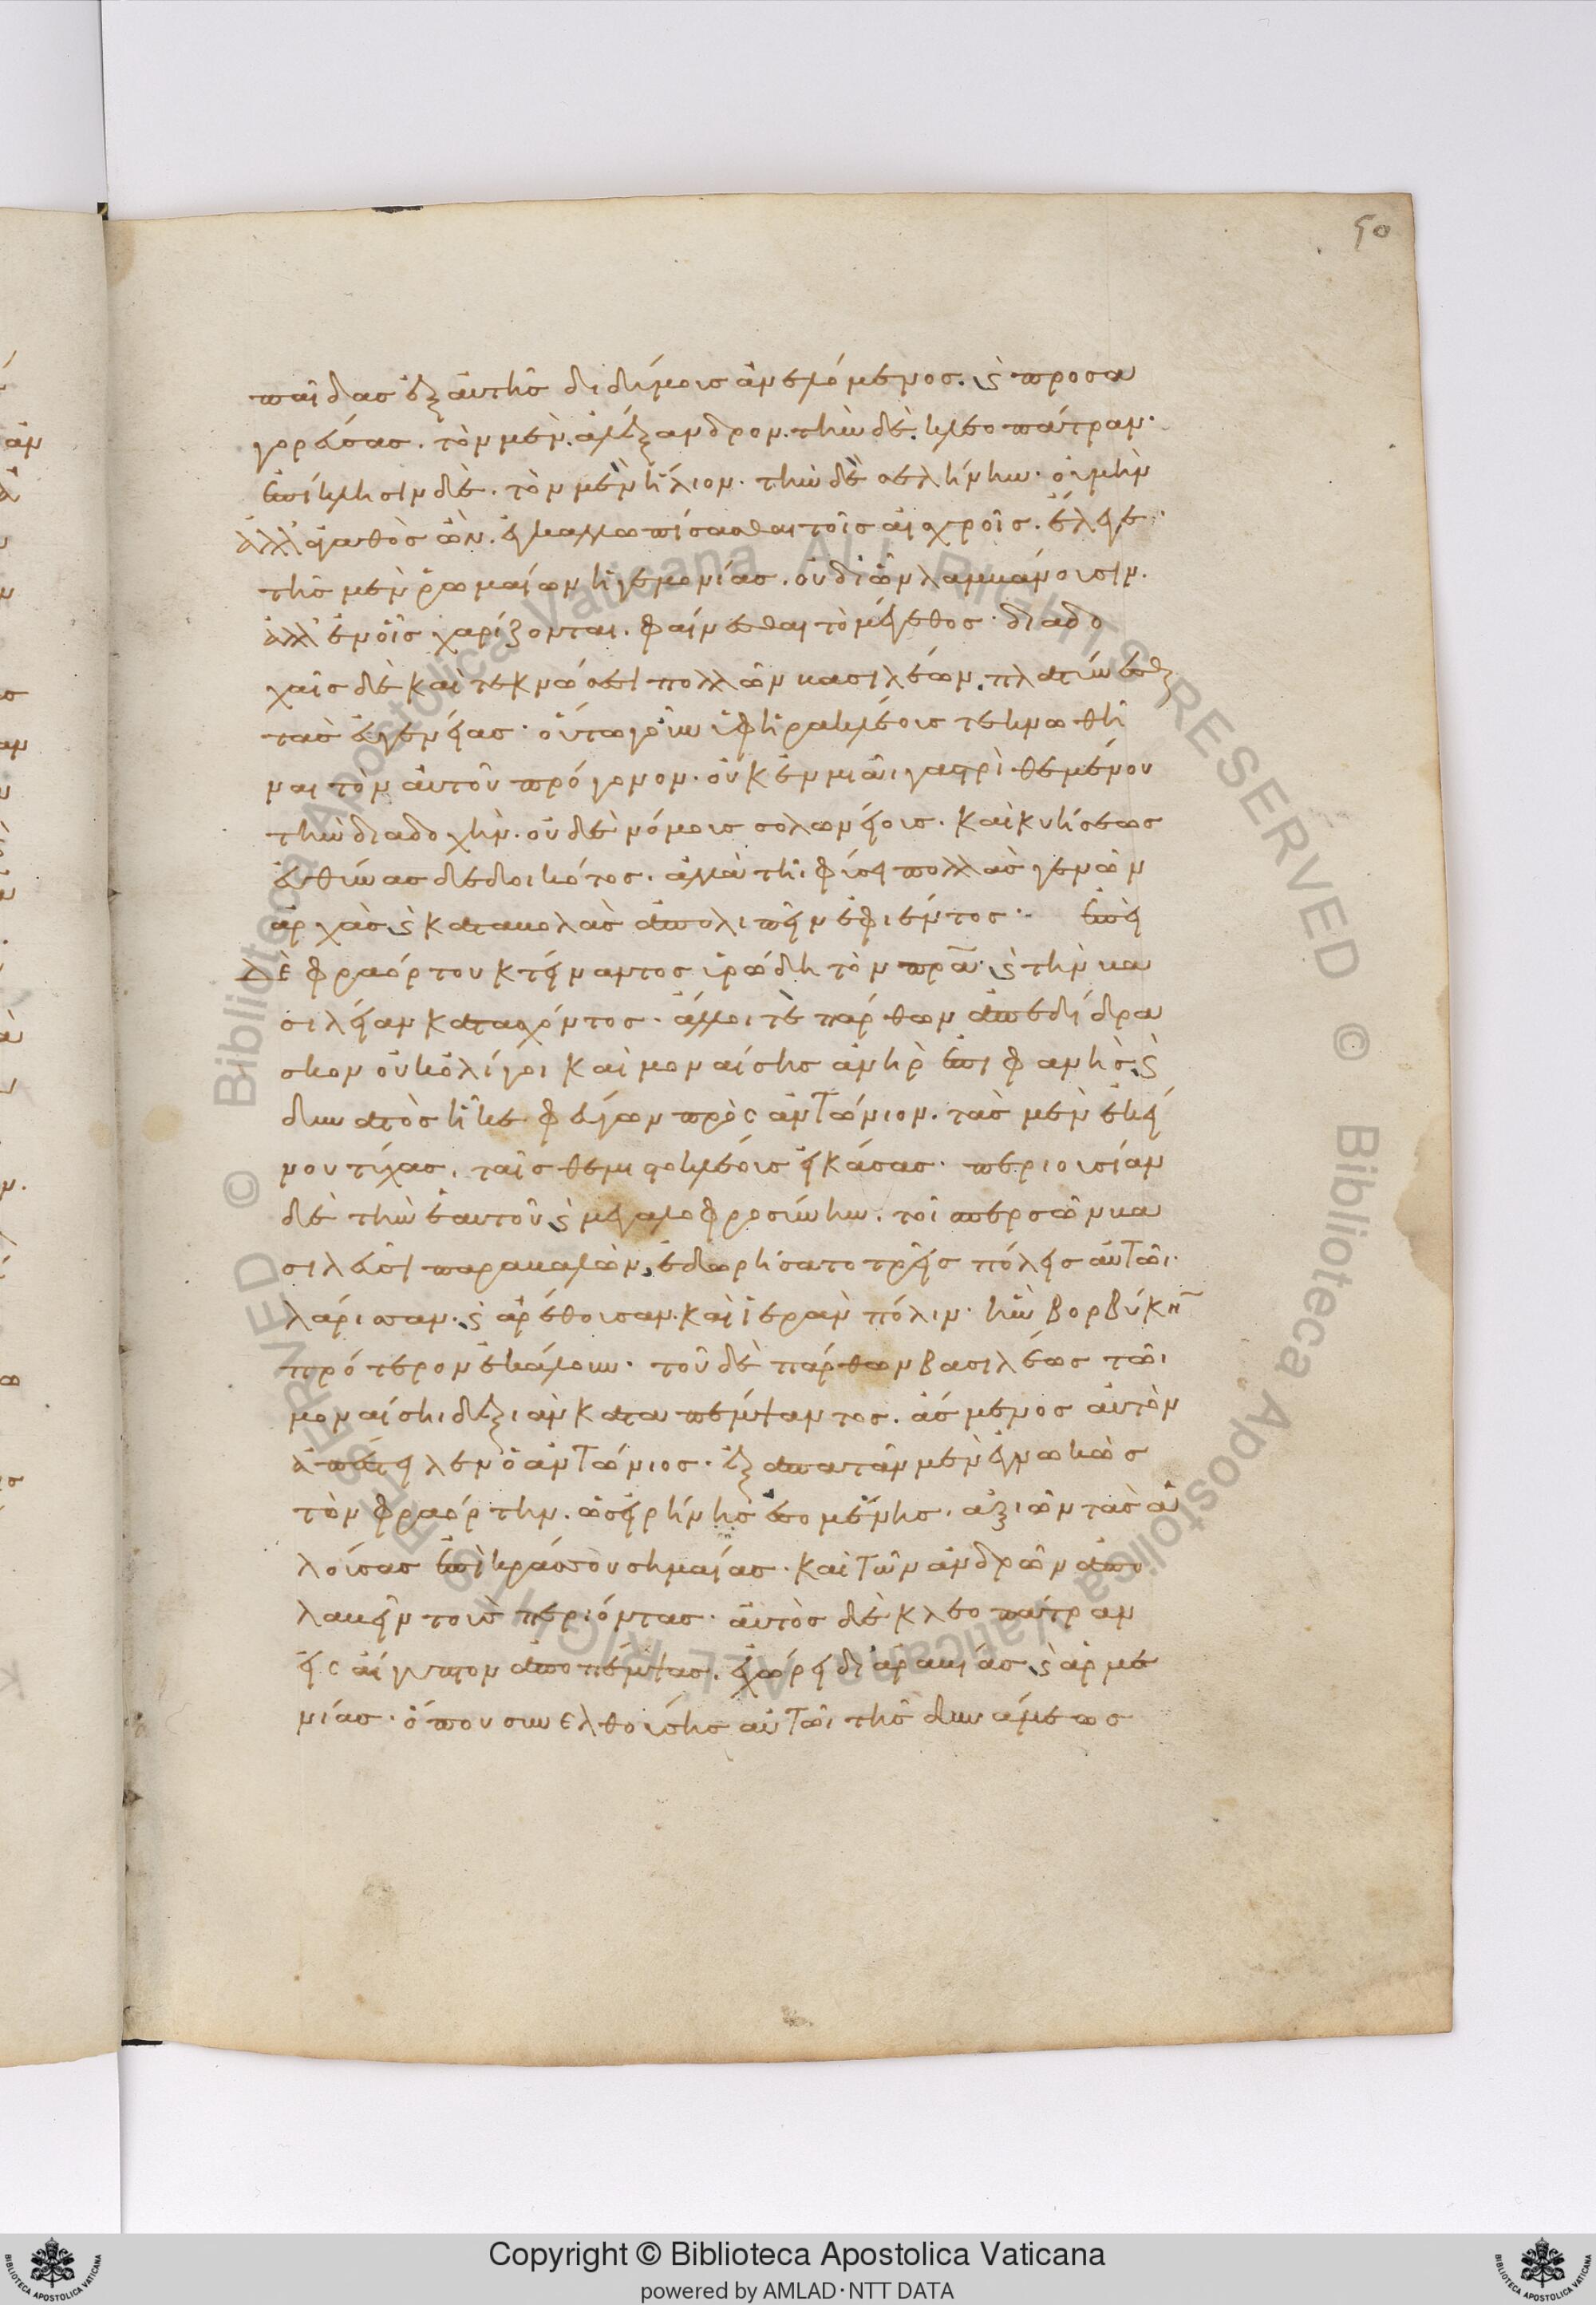 50
παῖδας ἐξ αὐτῆς διδύμους ἀνελόμενος. ϗ προσα
γορεύσας. τὸν μὲν. ἀλέξανδρον. τὴν δὲ. κλεοπάτραν·
ἐπίκλησιν δὲ. τὸν μὲν ἥλιον. τὴν δὲ σελήνην. οὐ μὴν
ἀλλ' ἀγαθὸς ὢν. ἐγκαλλωπίσασθαι τοῖς αἰσχροῖς. ἔλεγε·
τῆς μὲν ῥωμαίων ἡγεμονίας. οὐ δι' ὧν λαμβάνουσιν.
ἀλλ' ἐν οἷς χαρίζονται. φαίνεσθαι τὸ μέγεθος· διαδο
χαῖς δὲ καὶ τεκνώσεσι πολλῶν βασιλέων. πλατύνεσθαι
τὰς εὐγενείας· οὕτω γοῦν ὑφ' ἡρακλέους τεκνωθῆ
ναι τὸν αὐτοῦ πρόγονον. οὐκ ἐν μιᾶι γαστρὶ θεμένου
τὴν διαδοχήν. οὐδὲ νόμους σολωνείους. καὶ κυήσεως
εὐθύνας δεδοικότος. ἀλλὰ τῆι φύσει πολλὰς γενῶν
ἀρχὰς ϗ καταβολὰς ἀπολιπεῖν ἐφιέντος·. ἐπεὶ
δὲ φραόρτου κτείναντος ὑρώδη τὸν πρα. ϗ τὴν βα
σιλείαν κατασχόντος. ἄλλοι τε πάρθων ἀπεδίδρα
σκον οὐκ ὀλίγοι καὶ μοναίσης ἀνὴρ ἐπιφανὴς ϗ
δυνατὸς ἧκε φεύγων πρὸς ἀντώνιον. τὰς μὲν ἐκεί
νου τύχας. ταῖς θεμιστοκλέους εἰκάσας. περιουσίαν
δὲ τὴν ἑαυτοῦ ϗ μεγαλοφροσύνην. τοῖ περσῶν βα
σιλεῦσι παραβαλὼν, ἐδωρήσατο τρεῖς πόλεις αὐτῶι·
λάρισσαν. ϗ ἀρέθουσαν. καὶ ἱερὰν πόλιν. ἣν βορβύκην
πρότερον ἐκάλουν. τοῦ δὲ πάρθων βασιλέως τῶι
μοναίσηι δεξιὰν καταπέμψαντος. ἄσμενος αὐτὸν
ἀπέστειλεν ὁ ἀντώνιος. ἐξαπατᾶν μὲν ἐγνωκὼς
τὸν φραόρτην. ὡς εἰρήνης ἐσομένης. ἀξιῶν τὰς ἁ
λούσας ἐπὶ κράσσου σημαίας. καὶ τῶν ἀνδρῶν ἀπο
λαβεῖν τοὺς περιόντας. αὐτὸς δὲ κλεοπάτραν
εἰς αἴγυπτον ἀποπέμψας. ἐχώρει δι' ἀραβίας ϗ ἀρμε
νίας. ὅπου συνελθούσης αὐτῶι τῆς δυνάμεως
© Biblioteca Apostolica Vaticana ALL RIGHTS RESERVED © Biblioteca Apostolica Vaticana ALL RIGHTS RESERVED
Copyright © Biblioteca Apostolica Vaticana
powered by AMLAD·NTT DATA